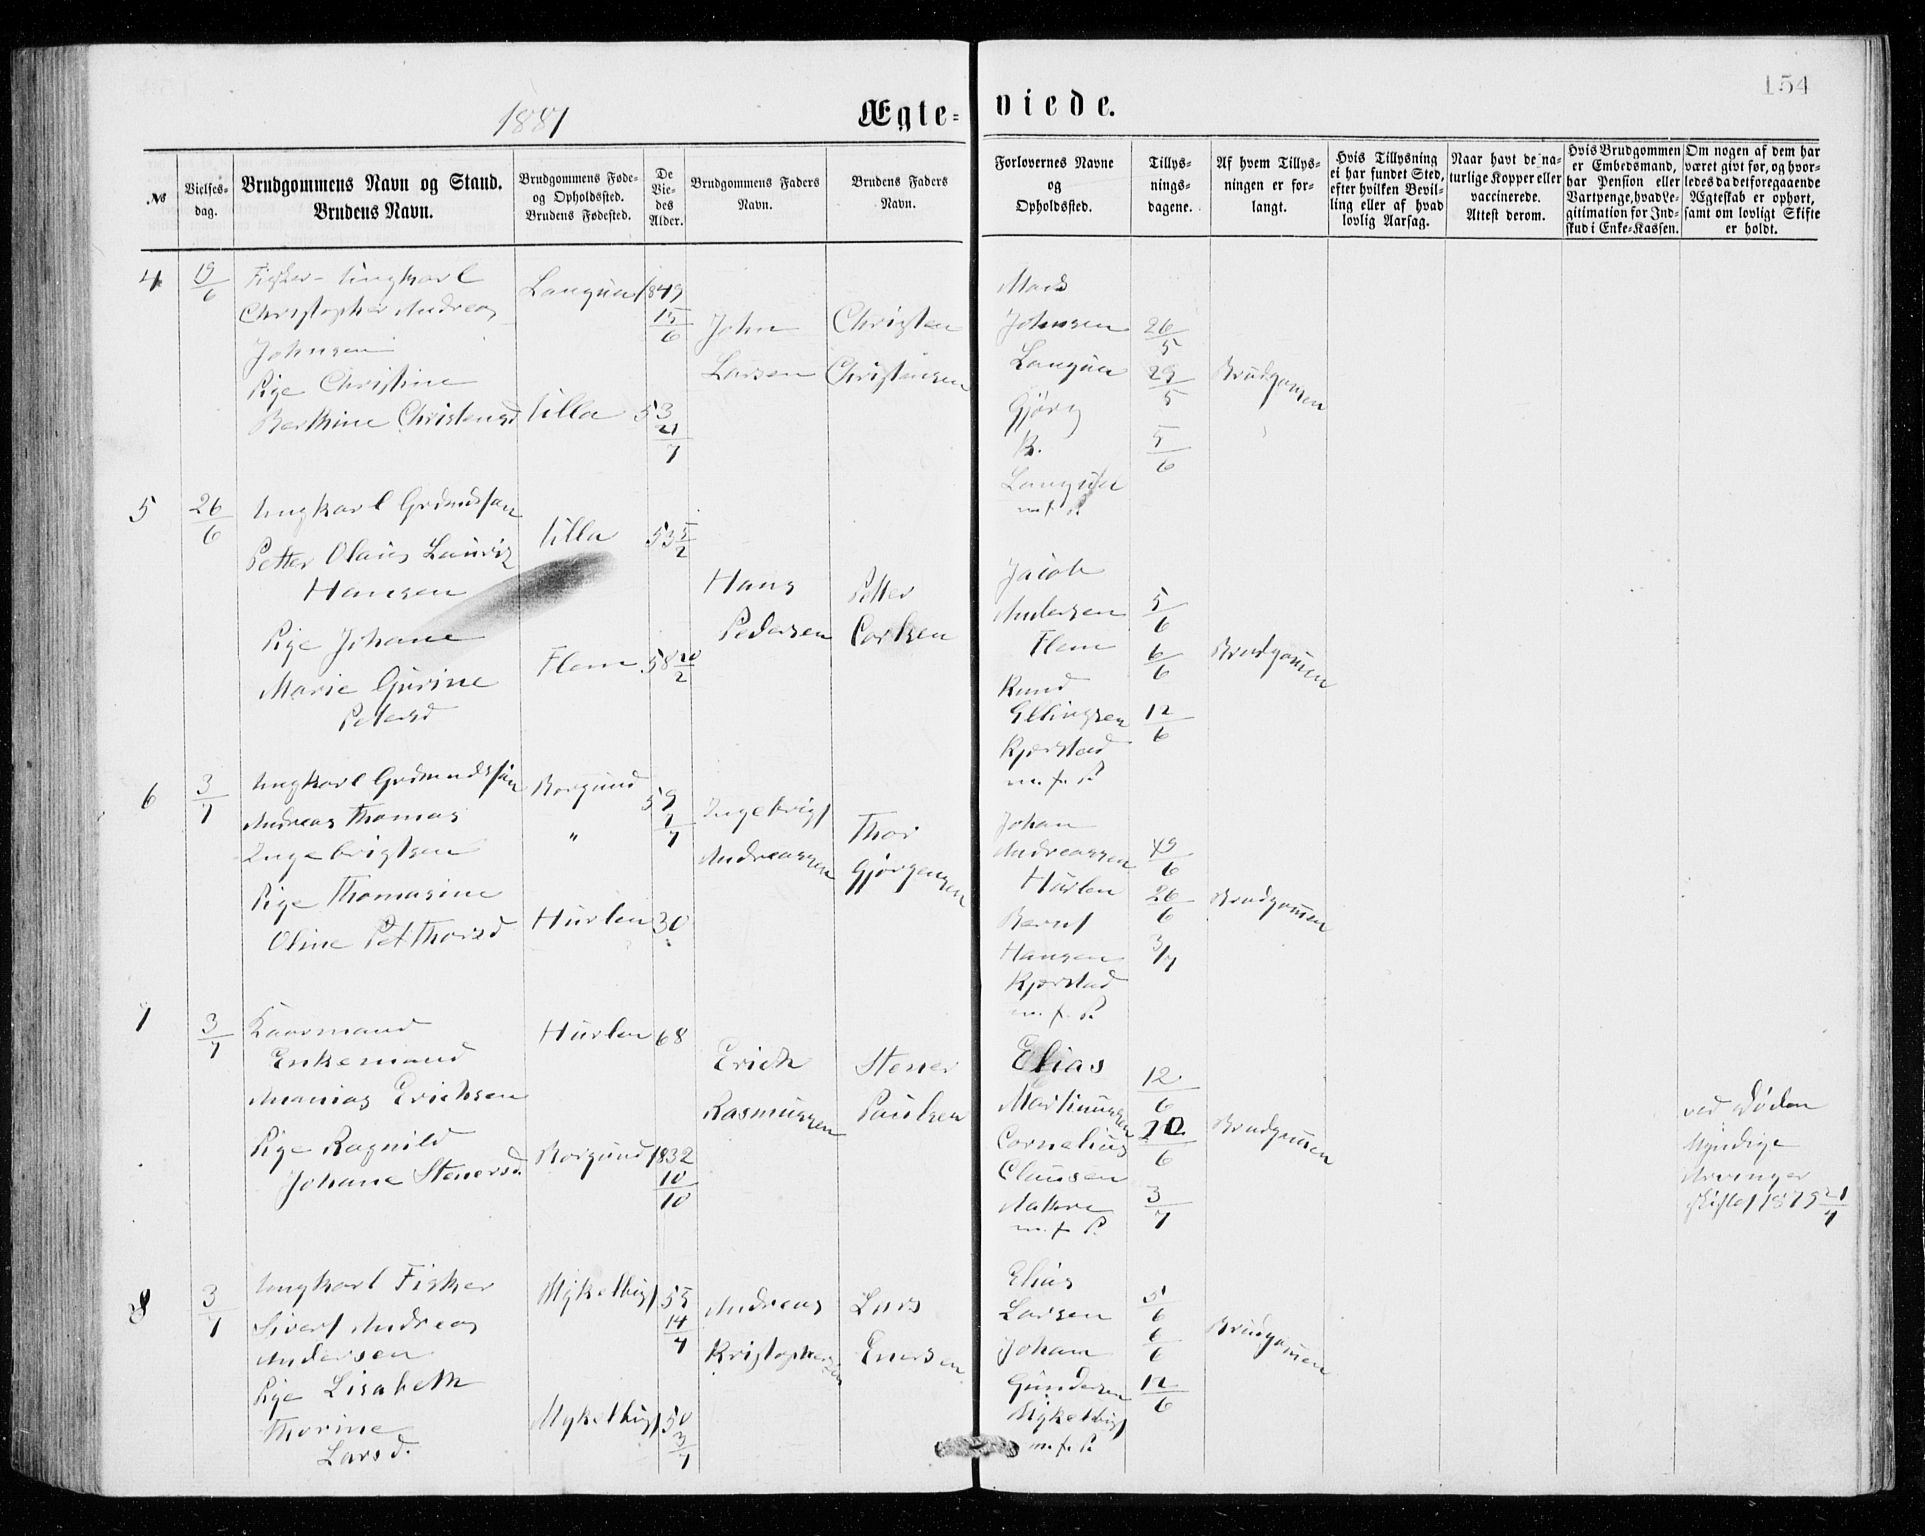 154
1881
Ægte-
viede.
№
Vielses-
dag.
Brudgommens Navn og Stand.
Brudens Navn.
Brudgommens Føde-
og Opholdssted.
Brudens Fødested.
De
Vie-
des
Alder.
Brudgommens Faders
Navn.
Brudens Faders
Navn.
Forlovernes Navne
og
Opholdssted.
Tillys-
nings-
dagene.
Af hvem Tillys-
ningen er for-
langt.
Hvis Tillysning
ei har fundet Sted,
efter hvilken Bevil-
ling eller af hvad
lovlig Aarsag.
Naar havt de na-
turlige Kopper eller
vaccinerede.
Attest derom.
Hvis Brudgommen
er Embedsmand,
har Pension eller
Vartpenge, hvad Le-
gitimation for Ind-
skud i Enke-Kassen.
Om nogen af dem har
været givt før, og hvor-
ledes da det foregaaende
Ægteskab er ophørt,
samt om lovligt Skifte
er holdt.
4
19/6
Fisker-Ungkarl
Christopher Andreas
Johnsen
Pige Christine
Berthine Christensd
Langua
Ulla
1849
15/6
53
21/7
John
Larsen
Christen
Christensen
Mads
Johnsen
Langua
Gjørg
K.
Langua
m. f. P.
26/5
29/5
5/6
Brudgomen
5
26/6
Ungkarl Grdmdssøn
Petter Olaus Lauriz
Hansen
Pige Johane
Marie Gurine
Petersd
Ulla
Flem
53 5/2
58 20/2
Hans
Pedersen
Petter
Carlsen
Jacob
Andersen
Flem
Knud
Ellingsen
Kjerstad
m. f. P.
5/6
6/6
12/6
Brudgomen
6
3/7
Ungkarl Grdmandssøn
Andreas Thomas
Ingebrigtsen
Pige Thomasine
Oline Pet Thorsd
Borgund
"
Hurlen
59
7/7
30
Ingebrigt
Andreassen
Thor
Gjørgensen
Johan
Andreassen
Hurlen
Bernt
Hansen
Kjerstad
m. f. P.
19/6
26/6
3/7
Brudgomen
7
3/7
Kaarmand
Enkemand
Ananias Erichsen
Pige Ragnild
Johane Stenersd.
Hurlen
Borgund
68
1832
10/10
Erich
Rasmussen
Stener
Paulsen
Elias
Martinussen
Cornelius
Clausen
Aakre
m. f. P.
12/6
20/6
3/7
Brudgomen
ved Døden
Myndige
Arvinger
skiftet 1879 21/7
8
3/7
Ungkarl Fisker
Sivert Andreas
Andersen
Pige Lisabeth
Thorine
Larsd.
Mykelbust
Mykelbust
55
14/4
50
3/7
Andreas
Kristophersen
Lars
Enersen
Elias
Larsen
Johan
Gundersen
Mykelbust
m. f. P.
5/6
6/6
12/6
Brudgomen